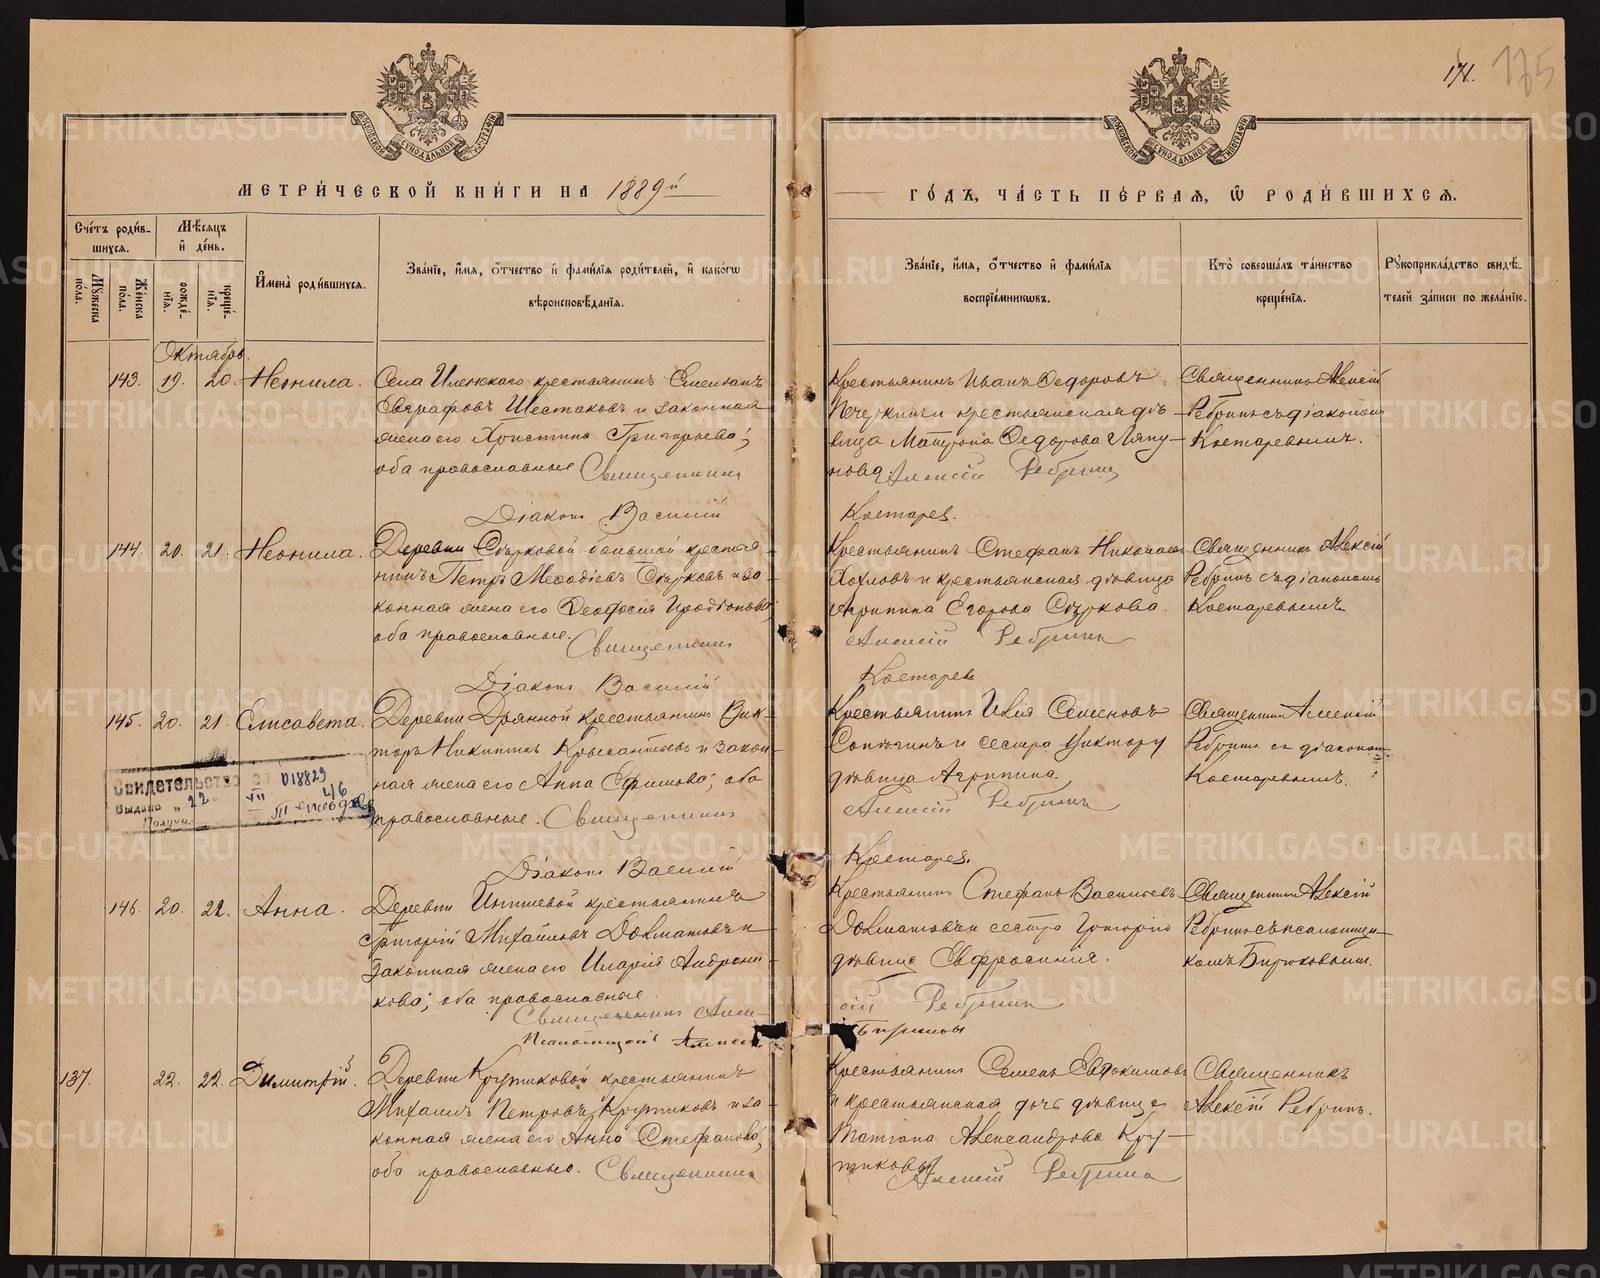 171. 175
МОСКОВСКОЙ СѴНОДАЛЬНОЙ ТИПОГРАФІИ
МОСКОВСКОЙ СѴНОДАЛЬНОЙ ТИПОГРАФІИ
МЕТРИ́ЧЕСКОЙ КНИ́ГИ НА 1889й
ГО́ДЪ, ЧА́СТЬ ПЕ́РВАЯ, Ѡ҆ РОДИ́ВШИХСѦ.
Сче́тъ роди́в-
шихся.
Мѣ́сяцъ
и҆ де́нь.
Му́жеска
по́ла.
Же́нска
по́ла.
рожде́-
нїѧ.
креще́-
нїѧ.
И҆мена̀ роди́вшихся.
Зва́нїе, и҆́мя, ѻ҆́тчество и҆ фами́лїя роди́телей, и҆ како́гѡ
вѣроисповѣ́данїѧ.
Зва́нїе, и҆́мя, ѻ҆́тчество и҆ фами́лїя
воспрїе́мникѡвъ.
Кто̀ соверша́лъ та́инство
креще́нїѧ.
Рꙋкоприкла́дство свидѣ́-
телей за́писи по жела́нїю.
Октябрь.
143. 19. 20. Неонила.
Села Иленскаго крестьянинъ Емелианъ
Шестаковъ и законная
жена его Христина Григорьева;
оба православные Священникъ
Діаконъ Василій
Крестьянинъ Иванъ Ѳедоровъ
и крестьянская дѣ-
вица Матрона Ѳедорова Ляпу-
нова. Алексій Ребринъ
Костарев.
Священникъ Алексій
Ребринъ съ діакономъ
Костаревымъ.
144. 20. 21. Неонила.
Деревни большой крестья-
нинъ Петръ Меѳодіевъ и за-
конная жена его Ѳеодосія Иродіонова;
оба православные. Священникъ
Діаконъ Василій
Крестьянинъ Стефанъ Николаевъ
Хохловъ и крестьянская дѣвица
Агрипина Егорова
Алексій Ребринъ
Костаревъ
Священникъ Алексій
Ребринъ съ діакономъ
Костаревымъ
145. 20. 21. Елисавета.
Деревни Дрянной крестьянинъ Вик-
торъ Никитинъ и закон-
ная жена его Анна Ефимова; оба
православные. Священникъ
Діаконъ Василій
Крестьянинъ Илія Семеновъ
и сестра Виктору
дѣвица Агрипина
Алексій Ребринъ
Костарев.
Священникъ Алексій
Ребринъ съ діакономъ
Костаревымъ.
Свидетельство
018829
Выдано „22" VII 46
Получ.
146. 20. 22. Анна.
Деревни крестьянинъ
Григорій Михайловъ Долматовъ и
законная жена его Иларія Андрони-
кова; оба православные
Священникъ Алек-
Псаломщикъ Алексѣй
Крестьянинъ Стефанъ Васильевъ
Долматовъ и сестра Григорію
дѣвица Евфросинія.
сій Ребринъ
Бирюковъ
Священникъ Алексій
Ребринъ съ псаломщи-
комъ Бирюковымъ.
137. 22. 22. Димитрій.
Деревни Крутиковой крестьянинъ
Михаилъ Петровъ Крутиковъ и за-
конная жена его Анна Стефанова;
оба православные. Священникъ
Крестьянинъ Семенъ Евдокимовъ
и крестьянская дочь дѣвица
Матрона Александрова Кру-
тиковы Алексій Ребринъ
Священникъ
Алексій Ребринъ.
METRIKI.GASO-URAL.RU